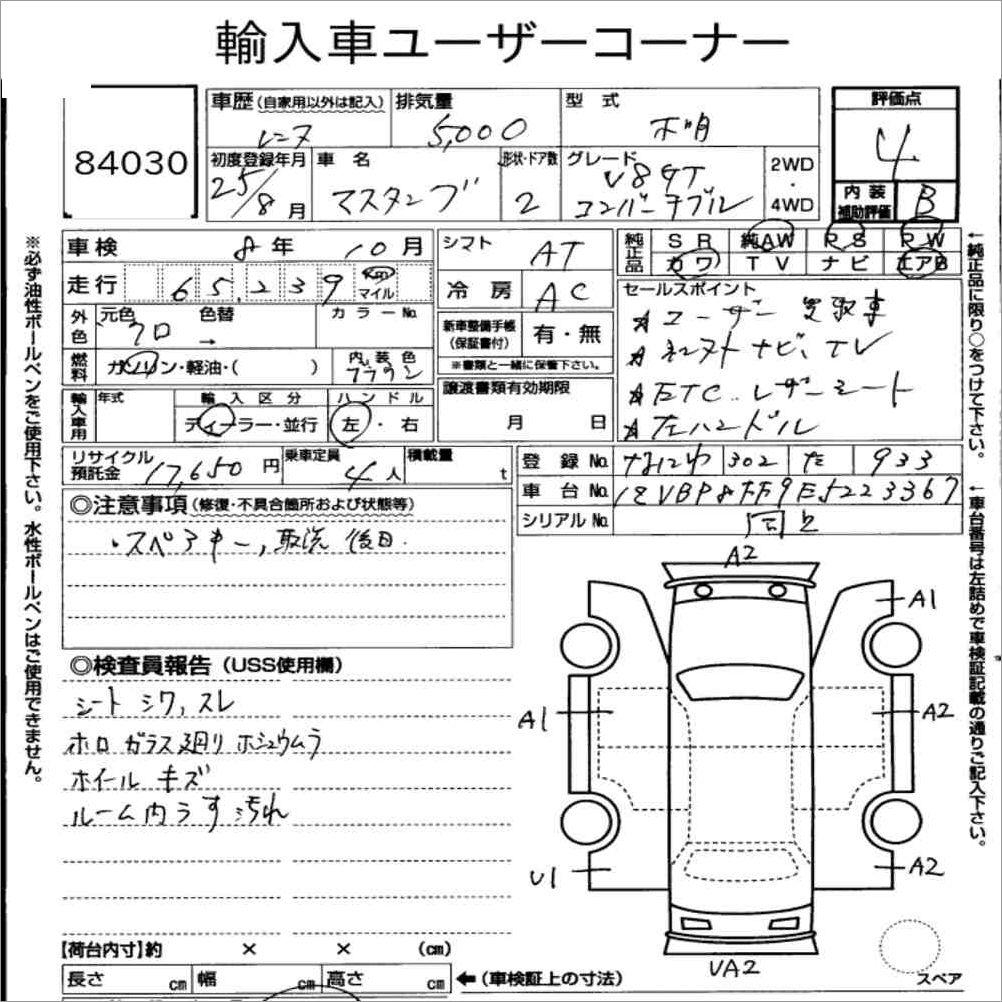 輸入車ユーザーコーナー
84030
車歴(自家用以外は記入) 排気量 型式 評価点
レンタ 5,000 不明 4
初度登録年月 車名 形状・ドア数 グレード 2WD・4WD
25/8月 マスタング 2 V8 GT コンバーチブル
内装補助評価 B
※必ず油性ボールペンをご使用下さい。水性ボールペンはご使用できません。
車検 8年 10月
走行 65,239 Km マイル
外色 元色 色替 カラーNo.
クロ →
燃料 ガソリン・軽油・( ) 内装色 ブラウン
輸入車用 年式 輸入区分 ハンドル
ディーラー・並行 左・右
シフト AT
冷房 AC
新車整備手帳(保証書付) 有・無
※書類と一緒に保管下さい。
譲渡書類有効期限
月 日
純正品 SR 純AW PS PW
カワ TV ナビ エアB
セールスポイント
☆ユーザー買取車
☆社外ナビ、TV
☆ETC. レザーシート
☆左ハンドル
←純正品に限り○をつけて下さい。
リサイクル預託金 17,650円 乗車定員 4人 積載量 t
登録No. 302 933
車台No.
シリアルNo. 同上
←車台番号は左詰めで車検証記載の通りご記入下さい。
◎注意事項(修復・不具合箇所および状態等)
・スペアキー, 取説 後日.
◎検査員報告(USS使用欄)
シート シワ, スレ
ホロ ガラス廻り ホシュウムラ
ホイール キズ
ルーム内 うす汚れ
A2
A1
A1
A2
U1
A2
UA2
スペア
【荷台内寸】約 × × (cm)
長さ cm 幅 cm 高さ cm ←(車検証上の寸法)